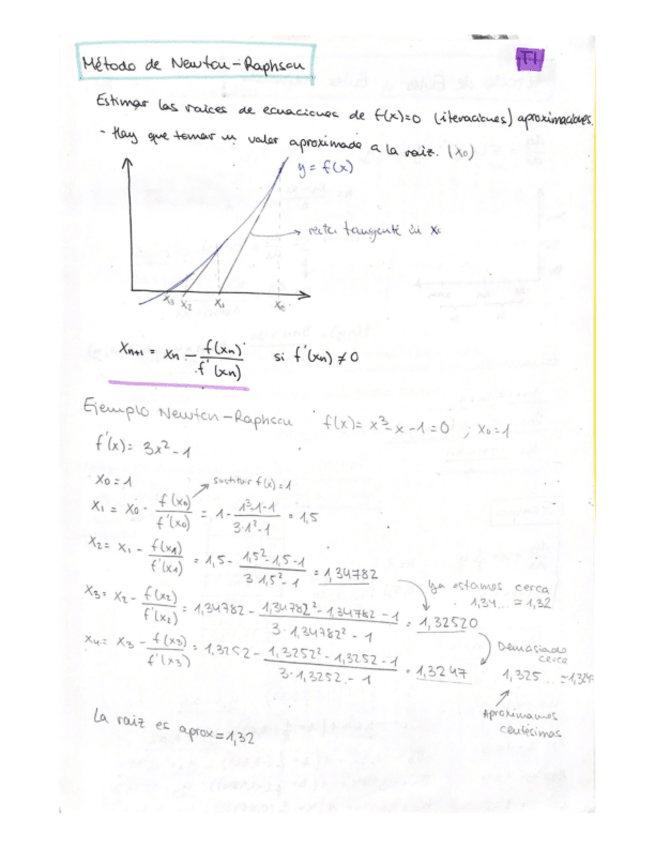 Método de Newton-Raphson
T1
Estimar las raíces de ecuaciones de f(x)=0 (iteraciones) aproximaciones.
- Hay que tomar un valor aproximado a la raiz. (x₀)
y = f(x)
recta tangente en x₀
x₃ x₂ x₁ x₀
xₙ₊₁ = xₙ - f(xₙ)/f'(xₙ) si f'(xₙ) ≠ 0
Ejemplo Newton-Raphson f(x)= x³-x-1=0 ; x₀=1
f'(x)= 3x²-1
x₀=1
sustituir f(x)=1
x₁ = x₀ - f(x₀)/f'(x₀) = 1 - 1³-1-1/3·1²-1 = 1,5
x₂= x₁ - f(x₁)/f'(x₁) = 1,5 - 1,5²-1,5-1/3 1,5²-1 = 1,34782
Ya estamos cerca
1,34... = 1,32
x₃= x₂ - f(x₂)/f'(x₂) = 1,34782 - 1,34782²-1,34782-1/3·1,34782²-1 = 1,32520
Demasiado cerca
x₄= x₃ - f(x₃)/f'(x₃) = 1,3252 - 1,3252²-1,3252-1/3·1,3252-1 = 1,3247
1,325... =1,324
Aproximamos
centésimas
La raiz es aprox=1,32